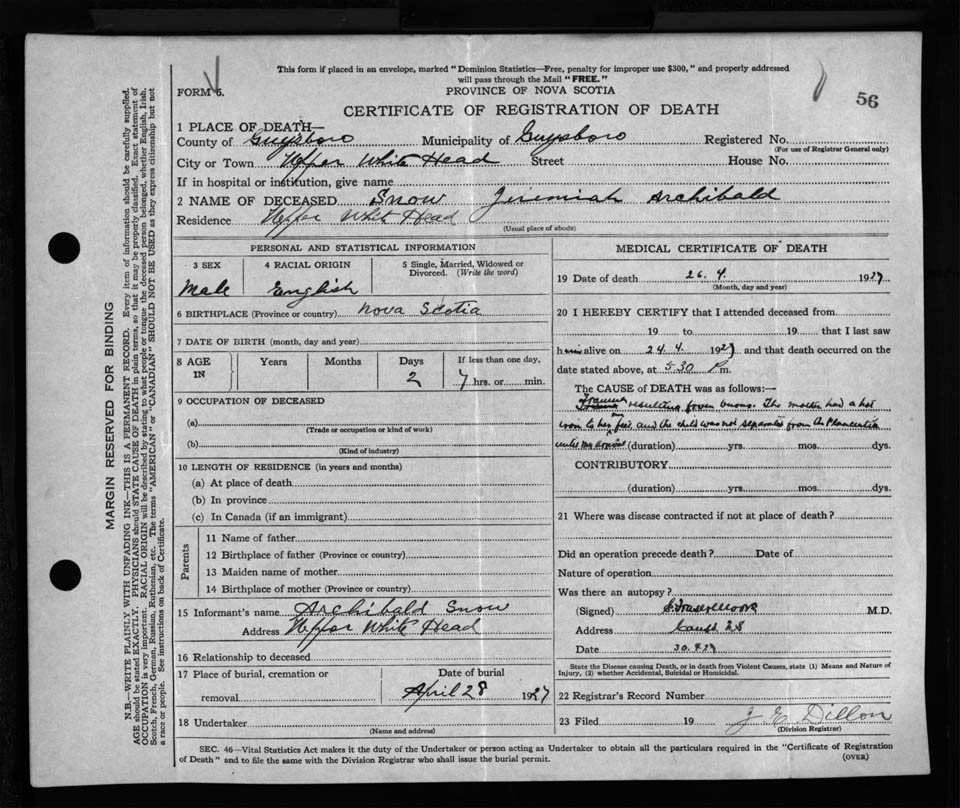 This form if placed in an envelope, marked "Dominion Statistics—Free, penalty for improper use $300," and properly addressed
will pass through the Mail "FREE."
FORM 6.
PROVINCE OF NOVA SCOTIA
56
CERTIFICATE OF REGISTRATION OF DEATH
1 PLACE OF DEATH—
County of Guysboro Municipality of Guysboro Registered No.
(For use of Registrar General only)
City or Town Upper White Head Street House No.
If in hospital or institution, give name
2 NAME OF DECEASED Snow Jeremiah Archibald
Residence Upper Whit Head
(Usual place of abode)
PERSONAL AND STATISTICAL INFORMATION
3 SEX 4 RACIAL ORIGIN 5 Single, Married, Widowed or Divorced. (Write the word)
Male English
6 BIRTHPLACE (Province or country) Nova Scotia
7 DATE OF BIRTH (month, day and year)
8 AGE IN Years Months Days If less than one day,
2 7 hrs. or min.
9 OCCUPATION OF DECEASED
(a)
(Trade or occupation or kind of work)
(b)
(Kind of industry)
10 LENGTH OF RESIDENCE (in years and months)
(a) At place of death
(b) In province
(c) In Canada (if an immigrant)
Parents
11 Name of father
12 Birthplace of father (Province or country)
13 Maiden name of mother
14 Birthplace of mother (Province or country)
15 Informant's name Archibald Snow
Address Upper White Head
16 Relationship to deceased
17 Place of burial, cremation or removal
Date of burial
April 28 1927
18 Undertaker
(Name and address)
MEDICAL CERTIFICATE OF DEATH
19 Date of death 26. 4. 1927
(Month, day and year)
20 I HEREBY CERTIFY that I attended deceased from
19 to 19 that I last saw
him alive on 24. 4. 1927 and that death occurred on
date stated above, at 5-30 P m.
The CAUSE of DEATH was as follows:—
Trauma resulting from burns. The mother had a hot
iron to her feet and the child was not separated from the
until (duration) yrs. mos. dys.
CONTRIBUTORY
(duration) yrs. mos. dys.
21 Where was disease contracted if not at place of death?
Did an operation precede death? Date of
Nature of operation
Was there an autopsy?
(Signed) M.D.
Address Canso N.S
Date 30.4.27
State the Disease causing Death, or in death from Violent Causes, state (1) Means and Nature of
Injury, (2) whether Accidental, Suicidal or Homicidal.
22 Registrar's Record Number
23 Filed 19 J E Dillon
(Division Registrar)
SEC. 46—Vital Statistics Act makes it the duty of the Undertaker or person acting as Undertaker to obtain all the particulars required in the "Certificate of Registration
of Death" and to file the same with the Division Registrar who shall issue the burial permit.
(OVER)
MARGIN RESERVED FOR BINDING
N.B.—WRITE PLAINLY WITH UNFADING INK—THIS IS A PERMANENT RECORD. Every item of information should be carefully supplied.
AGE should be stated EXACTLY. PHYSICIANS should STATE CAUSE OF DEATH in plain terms, so that it may be properly classified. Exact statement of
OCCUPATION is very important. RACIAL ORIGIN will be described by stating to what people or tongue the deceased person belonged, whether English, Irish,
Scotch, French, German, Russian, Ruthenian, etc. The terms "AMERICAN" or "CANADIAN" SHOULD NOT BE USED as they express citizenship but not
a race or people. See instructions on back of Certificate.